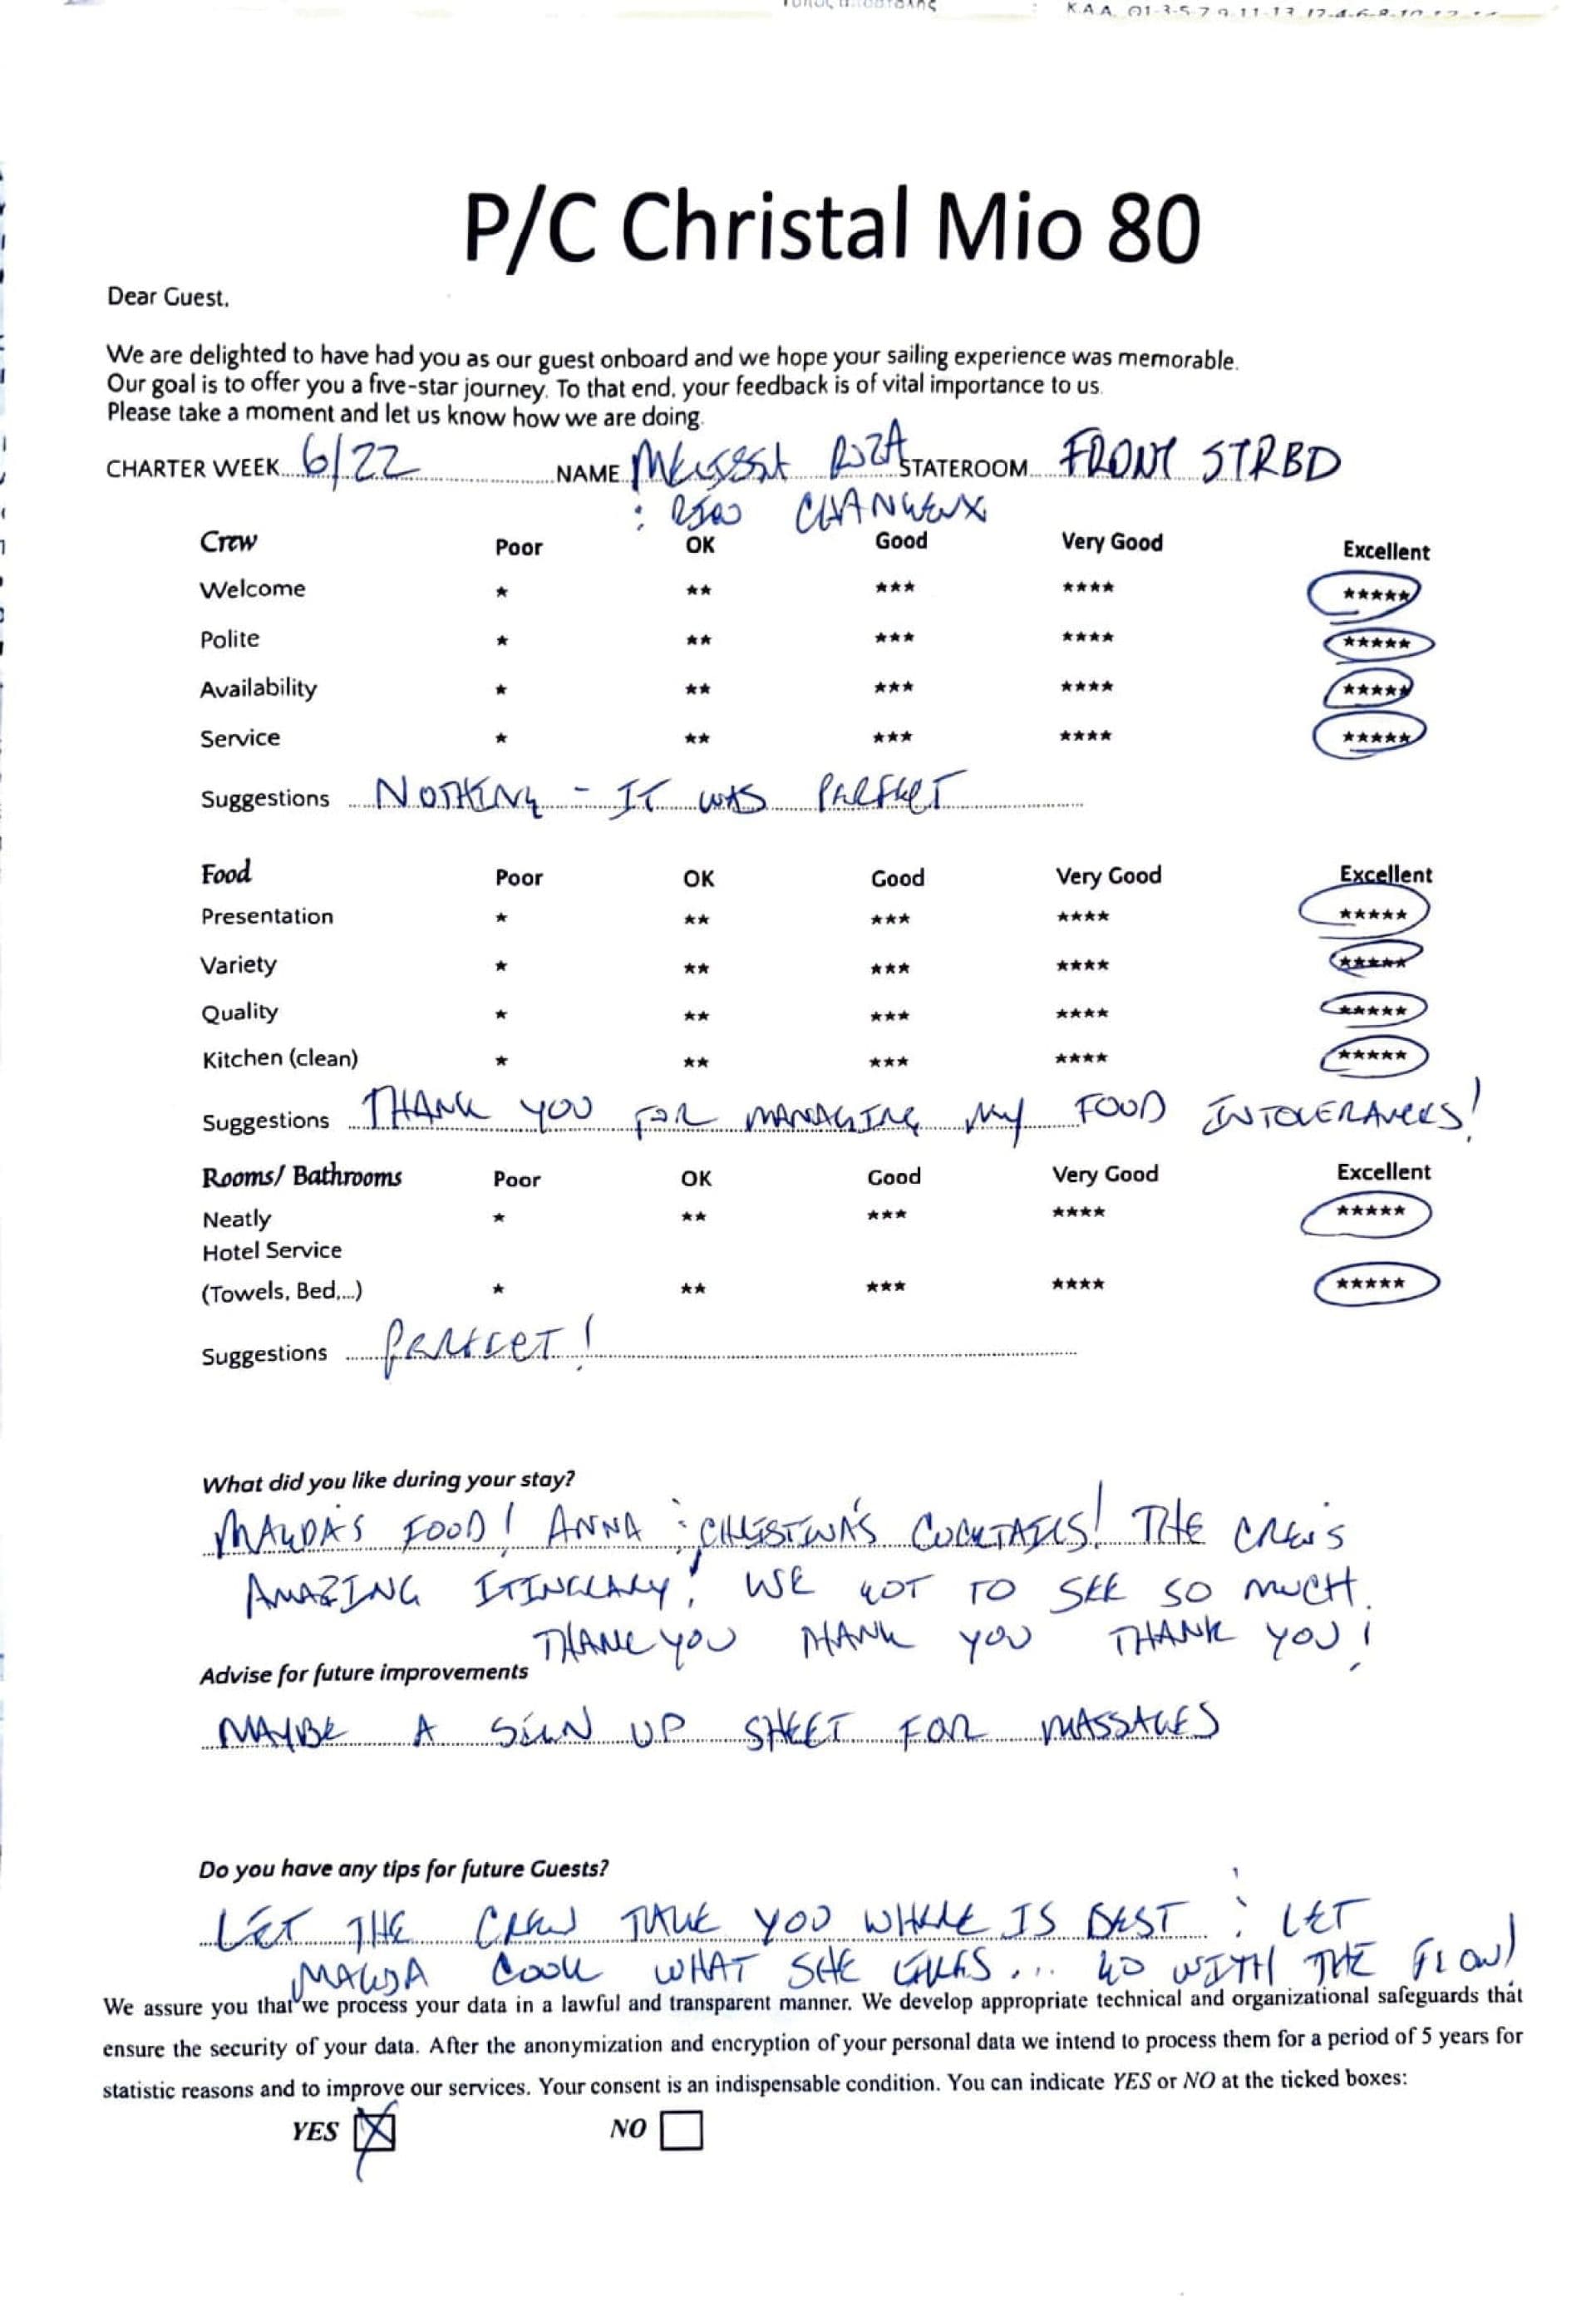 P/C Christal Mio 80
Dear Guest,
We are delighted to have had you as our guest onboard and we hope your sailing experience was memorable.
Our goal is to offer you a five-star journey. To that end, your feedback is of vital importance to us.
Please take a moment and let us know how we are doing.
CHARTER WEEK 6/22 NAME STATEROOM FRONT STRBD
Crew Poor OK Good Very Good Excellent
Welcome * ** *** **** *****
Polite * ** *** **** *****
Availability * ** *** **** *****
Service * ** *** **** *****
Suggestions NOTHING - IT WAS PERFECT
Food Poor OK Good Very Good Excellent
Presentation * ** *** **** *****
Variety * ** *** **** *****
Quality * ** *** **** *****
Kitchen (clean) * ** *** **** *****
Suggestions THANK YOU FOR MANAGING MY FOOD INTOLERANCES!
Rooms/ Bathrooms Poor OK Good Very Good Excellent
Neatly * ** *** **** *****
Hotel Service
(Towels, Bed,...) * ** *** **** *****
Suggestions PERFECT!
What did you like during your stay?
MAGDA'S FOOD! ANNA & CHRISTINA'S COCKTAILS! THE CREW'S
AMAZING ITINERARY! WE GOT TO SEE SO MUCH.
THANK YOU THANK YOU THANK YOU!
Advise for future improvements
MAYBE A SIGN UP SHEET FOR MASSAGES
Do you have any tips for future Guests?
LET THE CREW TAKE YOU WHERE IS BEST & LET
MAGDA COOK WHAT SHE LIKES... GO WITH THE FLOW!
We assure you that we process your data in a lawful and transparent manner. We develop appropriate technical and organizational safeguards that
ensure the security of your data. After the anonymization and encryption of your personal data we intend to process them for a period of 5 years for
statistic reasons and to improve our services. Your consent is an indispensable condition. You can indicate YES or NO at the ticked boxes:
YES NO